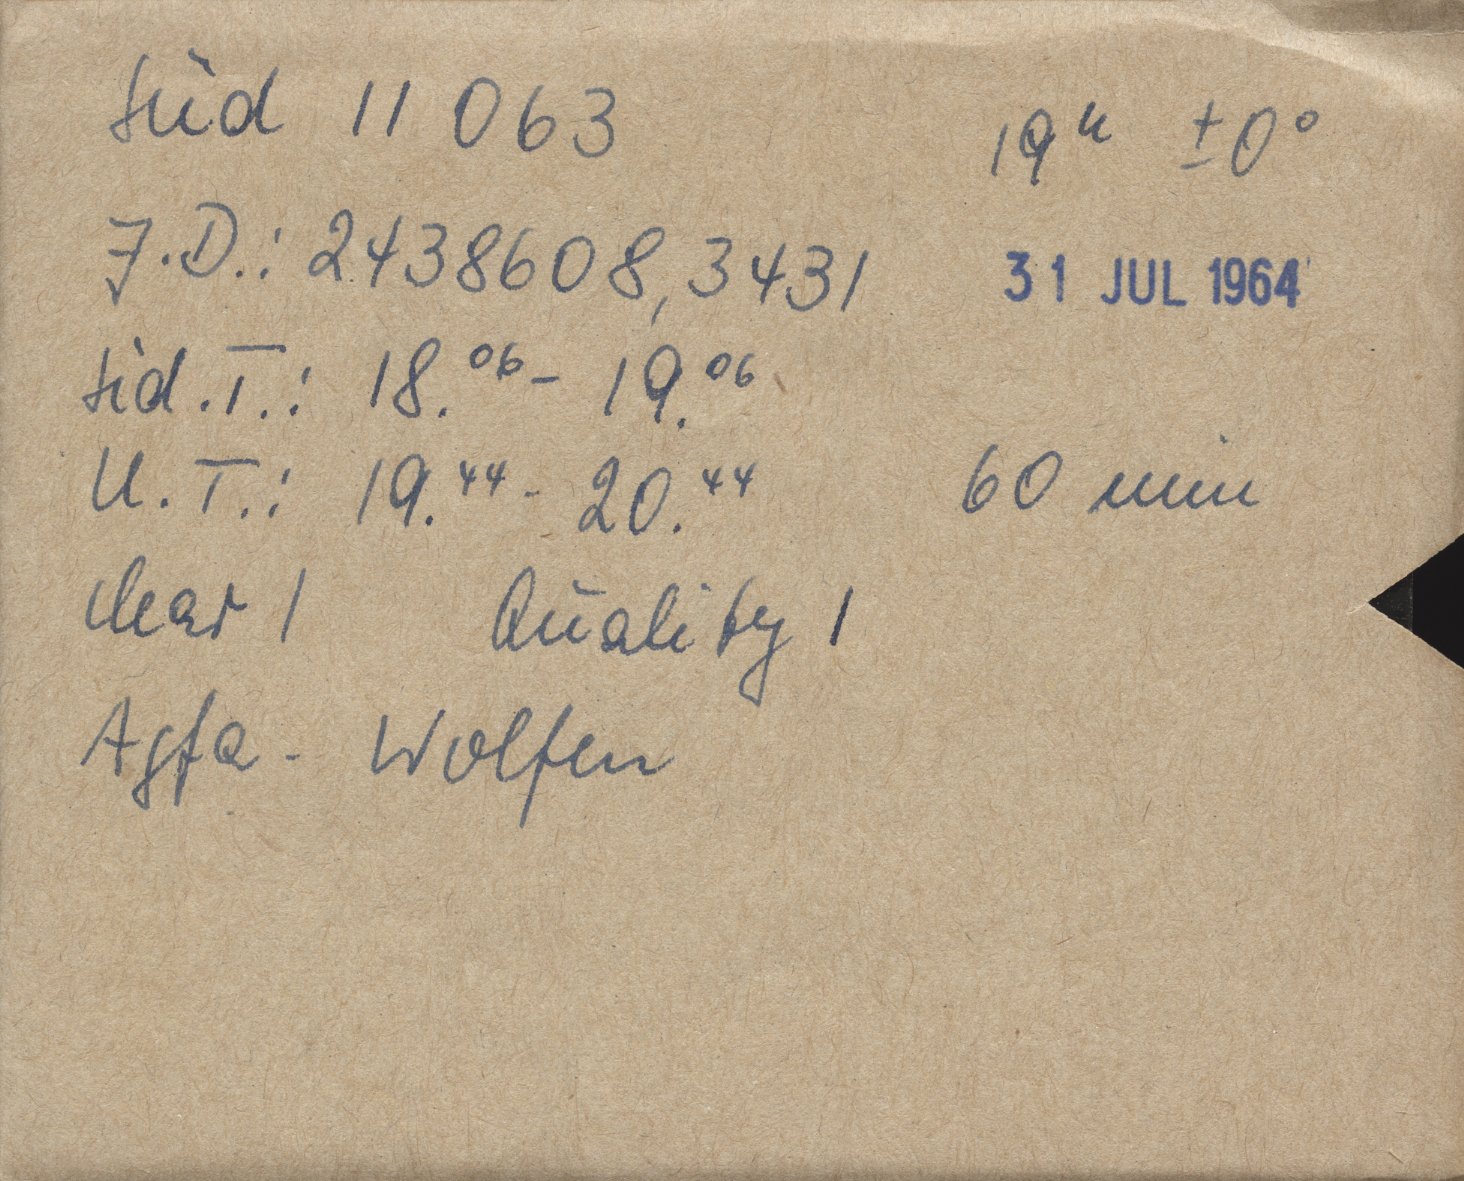 Süd 11 063 19ʰ ±0°
J.D.: 2438608,3431 31 JUL 1964
Sid.T.: 18.⁰⁶ - 19.⁰⁶
U.T.: 19.⁴⁴ - 20.⁴⁴ 60 min
clear 1 Quality 1
Agfa - Wolfen